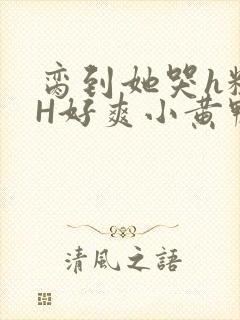 脔到她哭h
H好爽小黄
清風之語